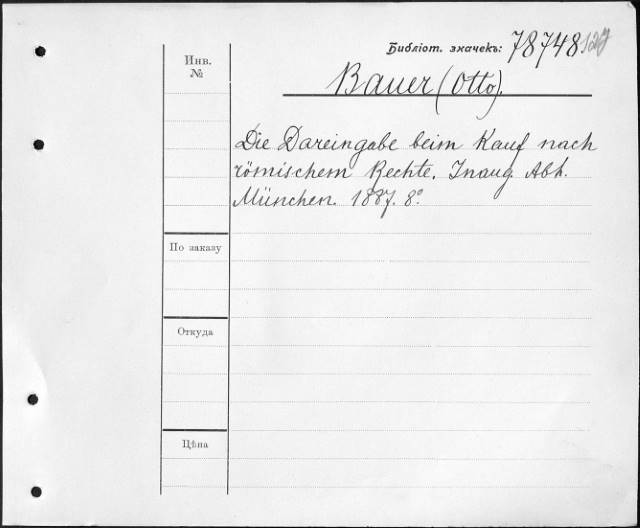 Библіот. значекъ: 78748
Инв. №
Bauer (Otto).
Die Dareingabe beim Kauf nach
römischem Rechte. Inaug Abh.
München. 1887. 8°
По заказу
Откуда
Цѣна